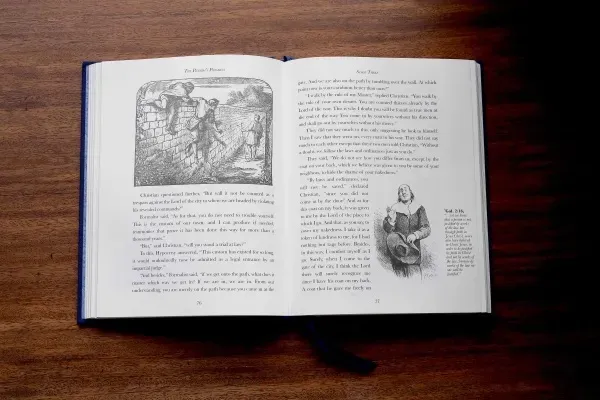 The Pilgrim's Progress
Christian questioned further, "But will it not be counted as a
trespass against the Lord of the city to where we are headed by violating
his revealed commands?"
Formalist said, "As for that, you do not need to trouble yourself.
This is the custom of our town, and I can produce if needed
testimonies that prove it has been done this way for more than a
thousand years."
"But," said Christian, "will you stand a trial at law?"
it would undoubtedly now be admitted as a legal custom by an
impartial judge."
"And besides," Formalist said, "if we get onto the path, what does it
matter which way we got in? If we are in, we are in. From our
understanding, you are merely on the path because you came in at the
26
gate. And we are also on the path by tumbling over the wall. At which
point now is your condition better than ours?"
"I walk by the rule of my Master," replied Christian. "You walk by
the rule of your own
end of the way. You came in by yourselves without his direction,
and shall go out by yourselves without his mercy."
They did not say much to this, only suggesting he look to himself.
Then I saw that they went on, every man in his way. They did not say
much to each other except that the two men told Christian, "Without
a doubt, we follow the laws and ordinances just as you do."
They said, "We do not see how you differ from us, except by the
coat on your back, which we believe was given to you by some of your
neighbors, to hide the shame of your nakedness."
"By laws and ordinances, you
will not be saved," declared
Christian, "since you did not
come in by the door. And as for
this coat on my back, it was given
to me by the Lord of the place to
which I go. And that, as you say, to
cover my nakedness. I take it as a
token of kindness to me, for I had
nothing but rags before. Besides,
in this way, I comfort myself as I
go. Surely, when I come to the
gate of the city, I think the Lord
there will surely recognize me
since I have his coat on my back.
A coat that he gave me freely on
Gal. 2:16
27